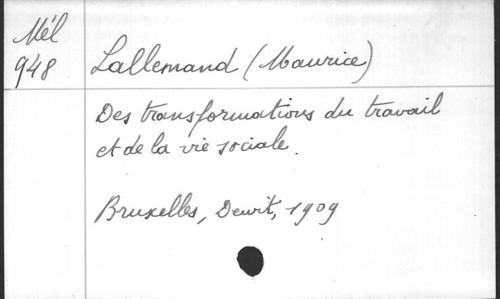 Mél
948
Lallemand (Maurice)
Des transformations du travail
et de la vie sociale.
Bruxelles, Dewit, 1909